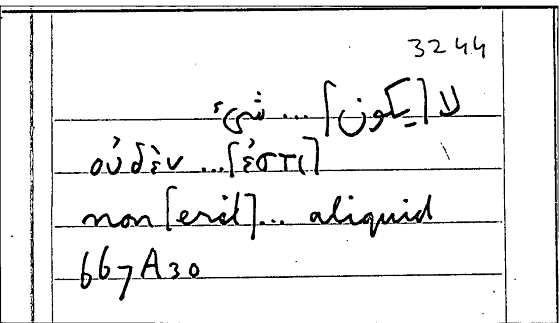 3244
لا [يكون] ... شيء
οὐδὲν ... [ἐστι]
non [erit] ... aliquid
667A30